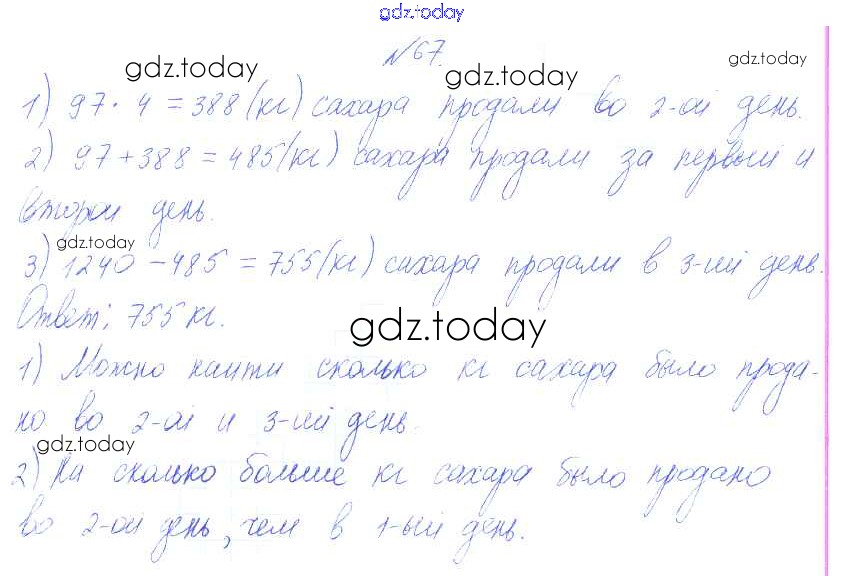 gdz.today
№67.
gdz.today gdz.today gdz.today
1) 97 · 4 = 388 (кг) сахара продали во 2-ой день.
2) 97 + 388 = 485 (кг) сахара продали за первый и
второй день.
gdz.today
3) 1240 - 485 = 755 (кг) сахара продали в 3-ий день.
Ответ: 755 кг.
gdz.today
1) Можно найти сколько кг сахара было прода-
но во 2-ой и 3-ий день.
gdz.today
2) На сколько больше кг сахара было продано
во 2-ой день, чем в 1-ый день.